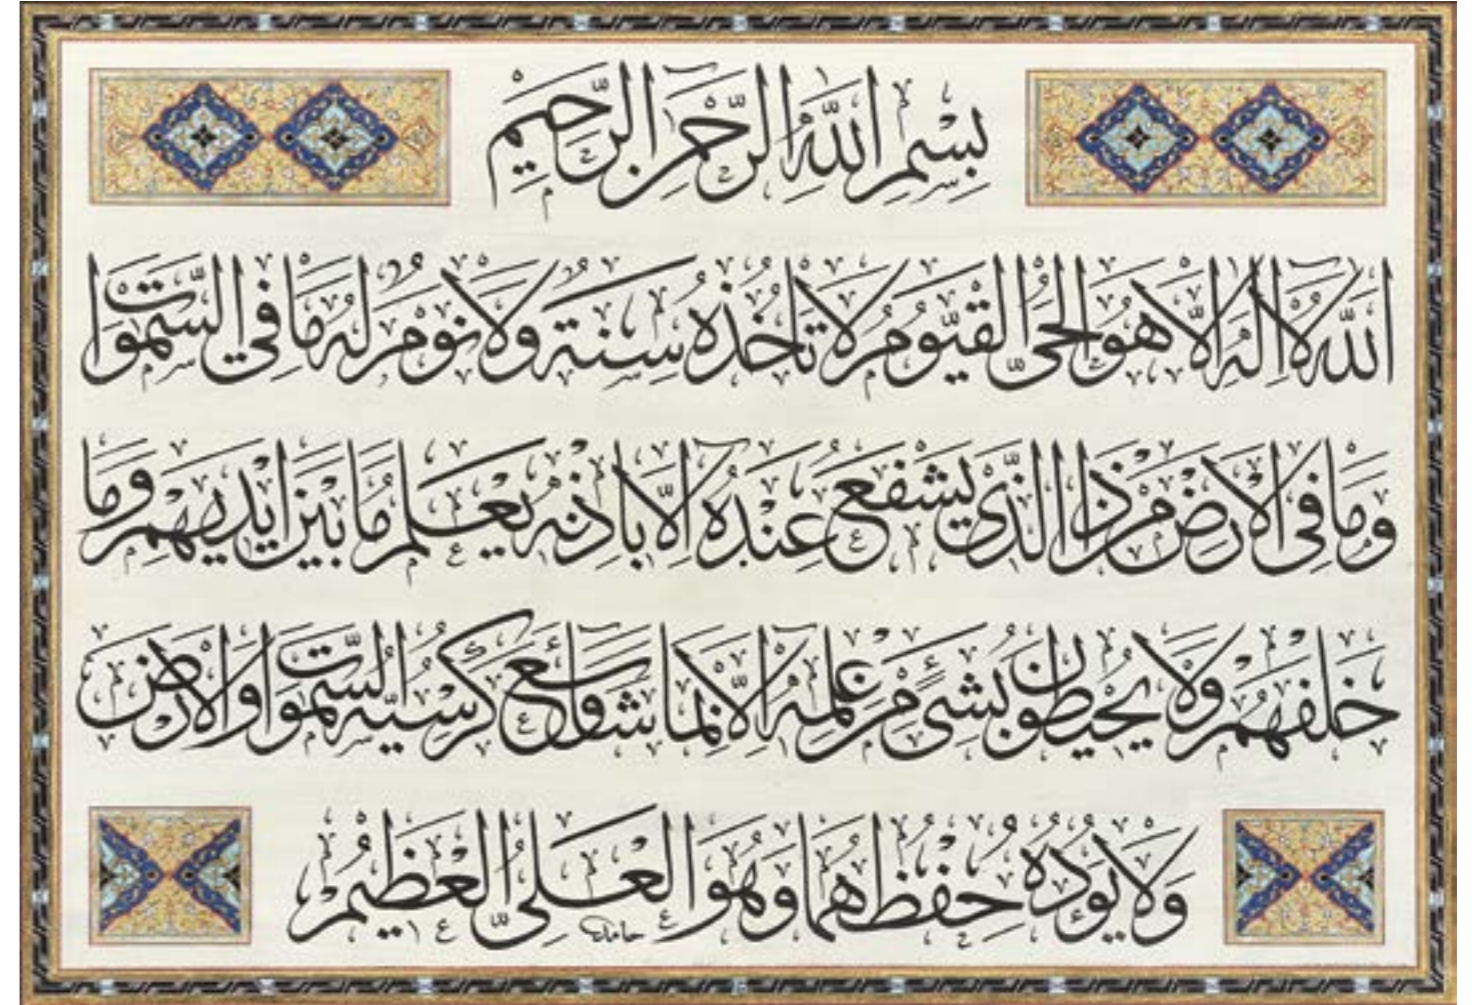 بِسْمِ اللّٰهِ الرَّحْمٰنِ الرَّحِيمِ
اللّٰهُ لَا اِلٰهَ اِلَّا هُوَ الْحَيُّ الْقَيُّومُ لَا تَأْخُذُهُ سِنَةٌ وَلَا نَوْمٌ لَهُ مَا فِي السَّمٰوَاتِ
وَمَا فِي الْاَرْضِ مَنْ ذَا الَّذِي يَشْفَعُ عِنْدَهُ اِلَّا بِاِذْنِهِ يَعْلَمُ مَا بَيْنَ اَيْدِيهِمْ وَمَا
خَلْفَهُمْ وَلَا يُحِيطُونَ بِشَيْءٍ مِنْ عِلْمِهِ اِلَّا بِمَا شَاءَ وَسِعَ كُرْسِيُّهُ السَّمٰوَاتِ وَالْاَرْضَ
وَلَا يَؤُدُهُ حِفْظُهُمَا وَهُوَ الْعَلِيُّ الْعَظِيمُ
حامد